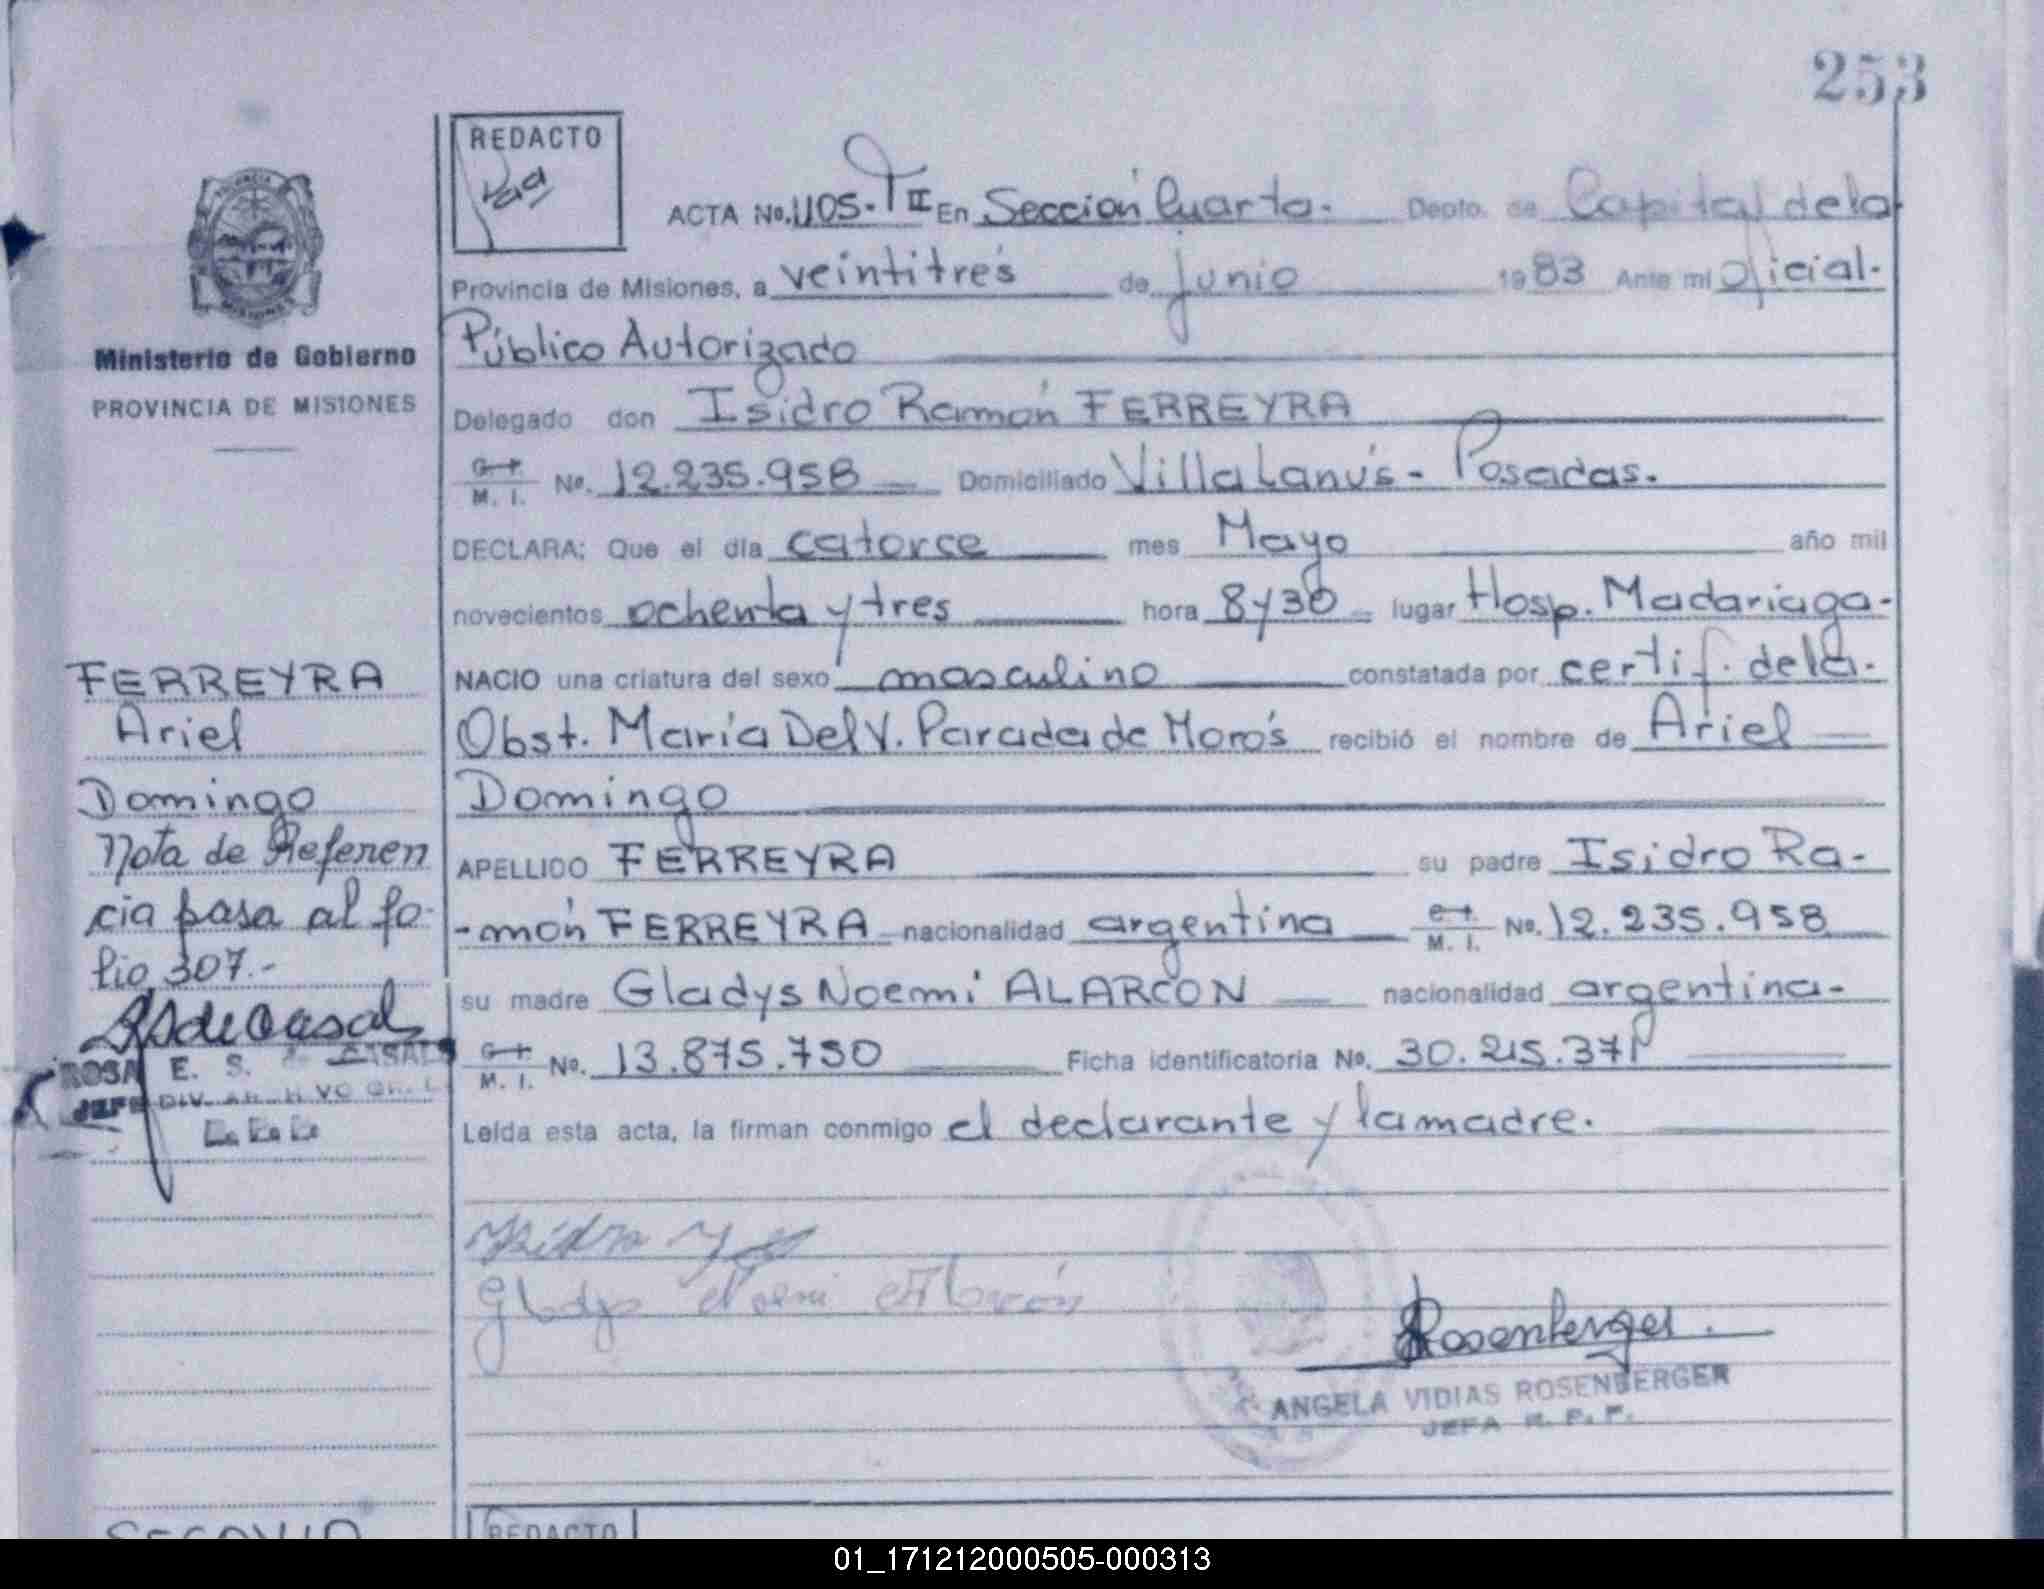 253
REDACTO
ACTA No. 1105. T II En Sección Cuarta. Depto. de Capital de la
Provincia de Misiones, a veintitrés de junio 1983 Ante mi Oficial.
Público Autorizado
Ministerio de Gobierno
PROVINCIA DE MISIONES
Delegado don Isidro Ramón FERREYRA
M. I. No. 12.235.958 Domiciliado Villa Lanús - Posadas.
DECLARA: Que el día catorce mes Mayo año mil
novecientos ochenta y tres hora 8 y 30 lugar Hosp. Madariaga-
NACIO una criatura del sexo masculino constatada por certif. de la.
Obst. María Del V. Parada de Morós recibió el nombre de Ariel
Domingo
APELLIDO FERREYRA su padre Isidro Ra-
-món FERREYRA nacionalidad argentina M. I. No. 12.235.958
su madre Gladys Noemi ALARCON nacionalidad argentina-
M. I. No. 13.875.750 Ficha identificatoria No. 30.215.371
Leída esta acta, la firman conmigo el declarante y la madre.
FERREYRA
Ariel
Domingo
Nota de Referen
cia pasa al fo-
lio 307.-
RSdeCasal
ROSA E. S. de CASAL
JEFE DIV.
Isidro
Gladys Noemi Alarcón
Rosenberger.
ANGELA VIDIAS ROSENBERGER
JEFA R. P. P.
SEGOVIA
REDACTO
01_171212000505-000313